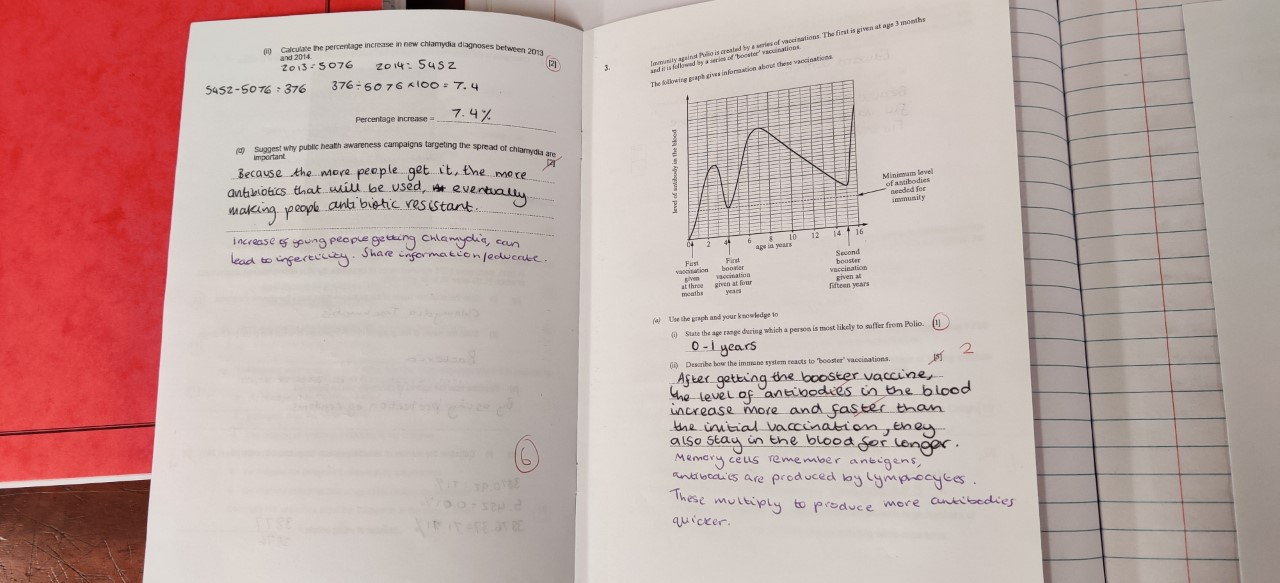 (ii) Calculate the percentage increase in new chlamydia diagnoses between 2013
and 2014.
[2]
2013 = 5076 2014 = 5452
5452-5076 = 376 376 ÷ 5076 × 100 = 7.4
Percentage increase = 7.4%
(d) Suggest why public health awareness campaigns targeting the spread of chlamydia are
important.
Because the more people get it, the more
antibiotics that will be used, eventually
making people antibiotic resistant.
Increase of young people getting Chlamydia, can
lead to infertility. Share information/educate.
6
3.
Immunity against Polio is created by a series of vaccinations. The first is given at age 3 months
and it is followed by a series of 'booster' vaccinations.
The following graph gives information about these vaccinations.
level of antibody in the blood
Minimum level
of antibodies
needed for
immunity
0 2 4 6 8 10 12 14 16
age in years
First
vaccination
given
at three
months
First
booster
vaccination
given at four
years
Second
booster
vaccination
given at
fifteen years
(a) Use the graph and your knowledge to
(i) State the age range during which a person is most likely to suffer from Polio. [1]
0-1 years
(ii) Describe how the immune system reacts to 'booster' vaccinations. [3] 2
After getting the booster vaccine,
the level of antibodies in the blood
increase more and faster than
the initial vaccination, they
also stay in the blood for longer.
Memory cells remember antigens,
antibodies are produced by lymphocytes.
These multiply to produce more antibodies
quicker.